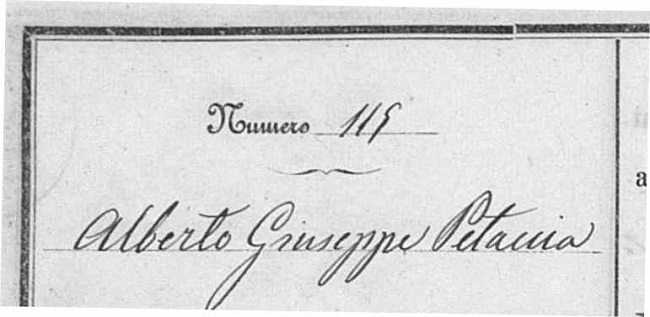 Numero 115
Alberto Giuseppe Petaccia
a